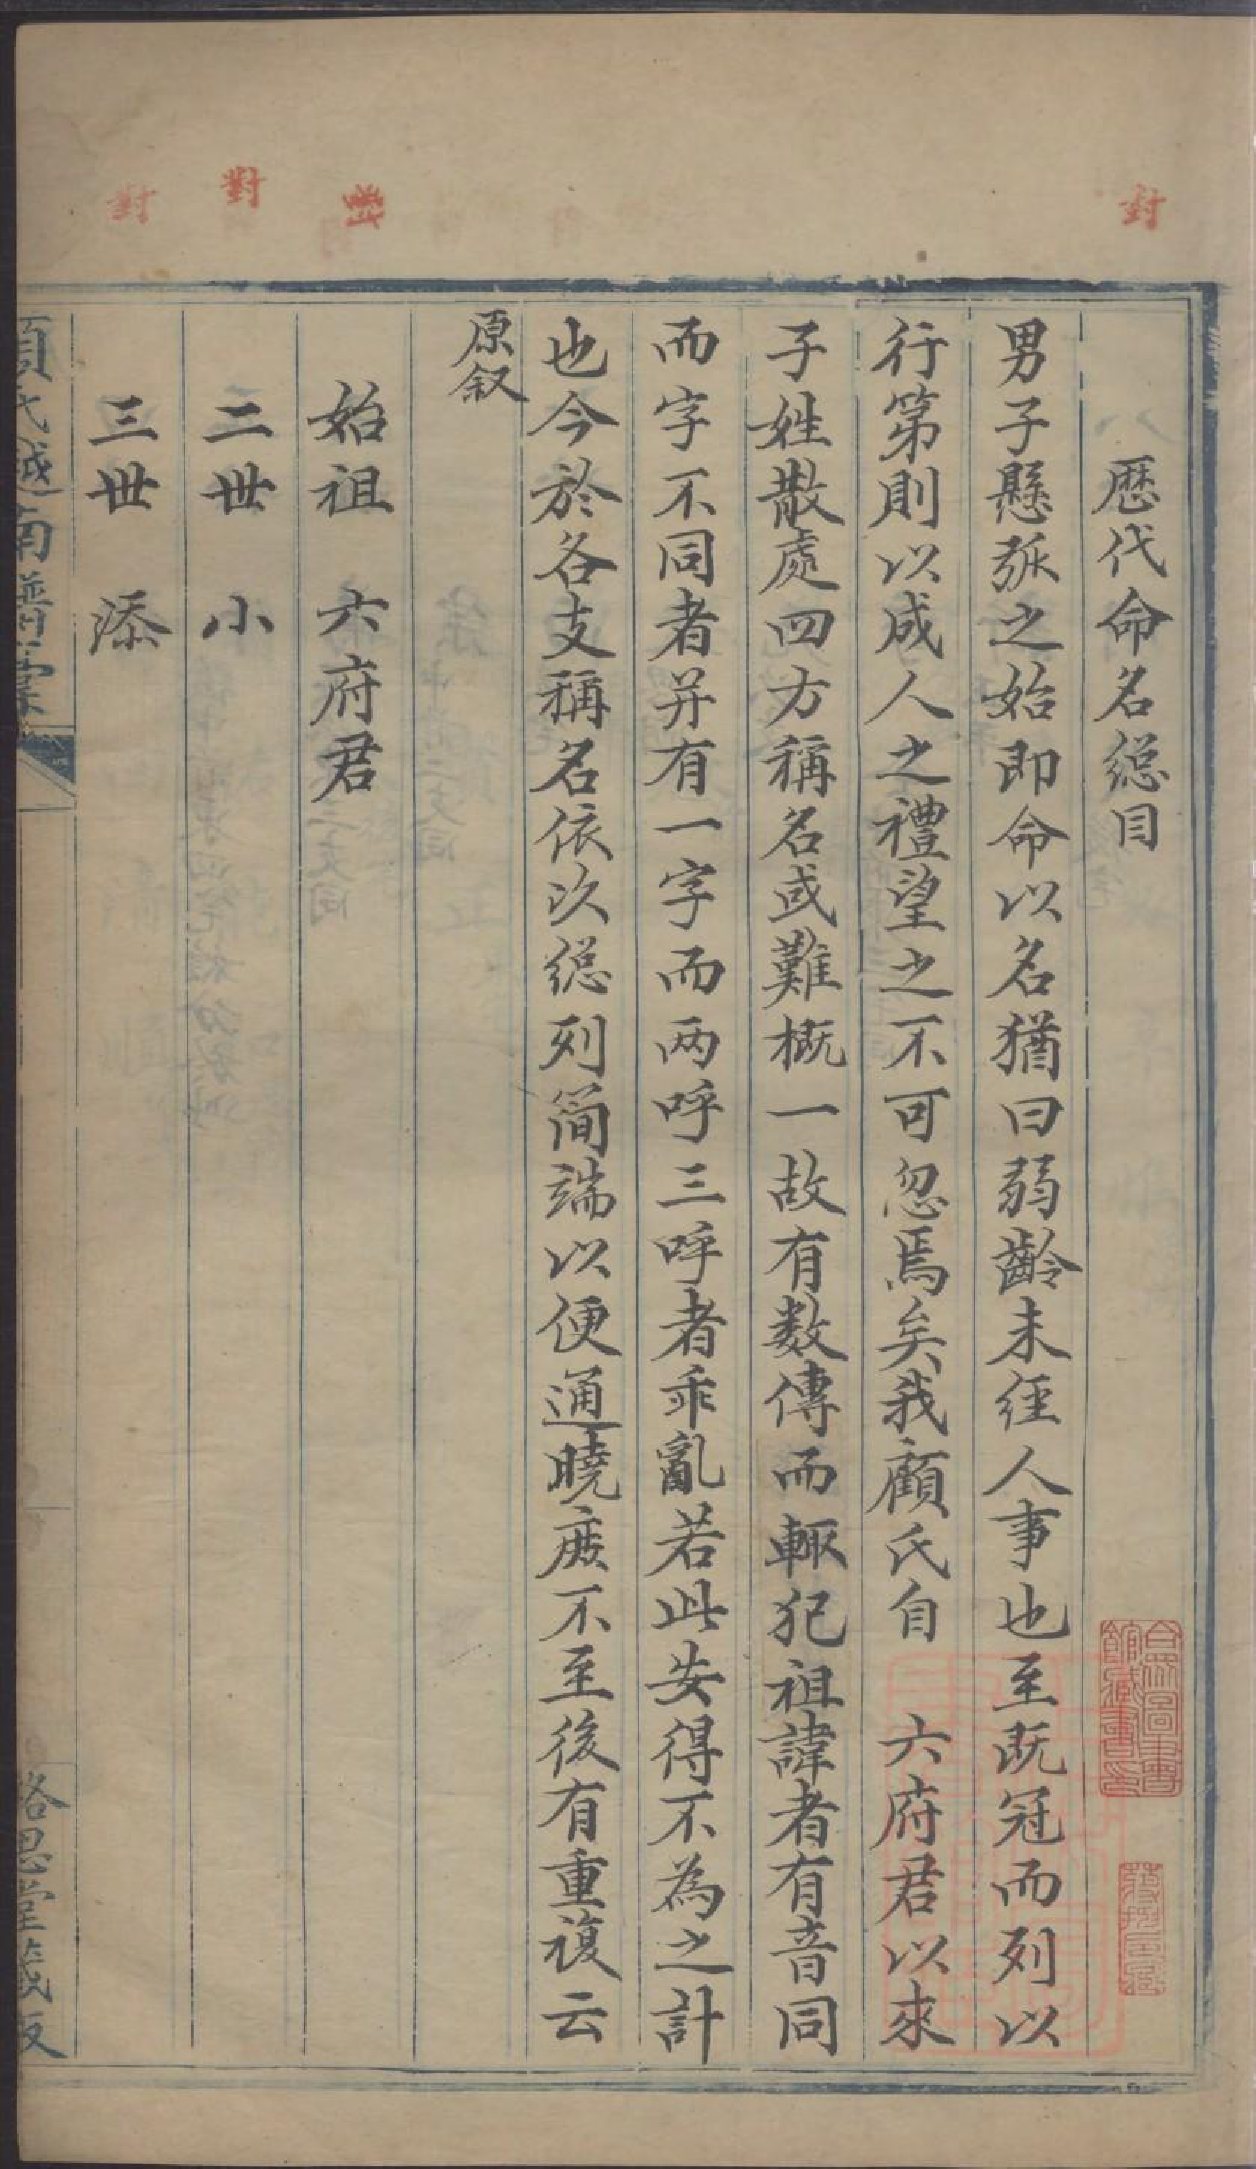 對
歷代命名総目
男子懸弧之始即命以名猶曰弱齡未經人事也至既冠而列以
行第則以成人之禮望之不可忽焉矣我顧氏自 六府君以來
子姓散處四方稱名或難概一故有数傳而輒犯祖諱者有音同
而字不同者并有一字而兩呼三呼者乖亂若此安得不為之計
也今於各支稱名依次総列简端以便通曉庶不至後有重複云
原叙
對
始祖 六府君
對
二世 小
對
三世 添
顧氏越南譜稾
洛思堂藏版
合眾圖書館藏書印